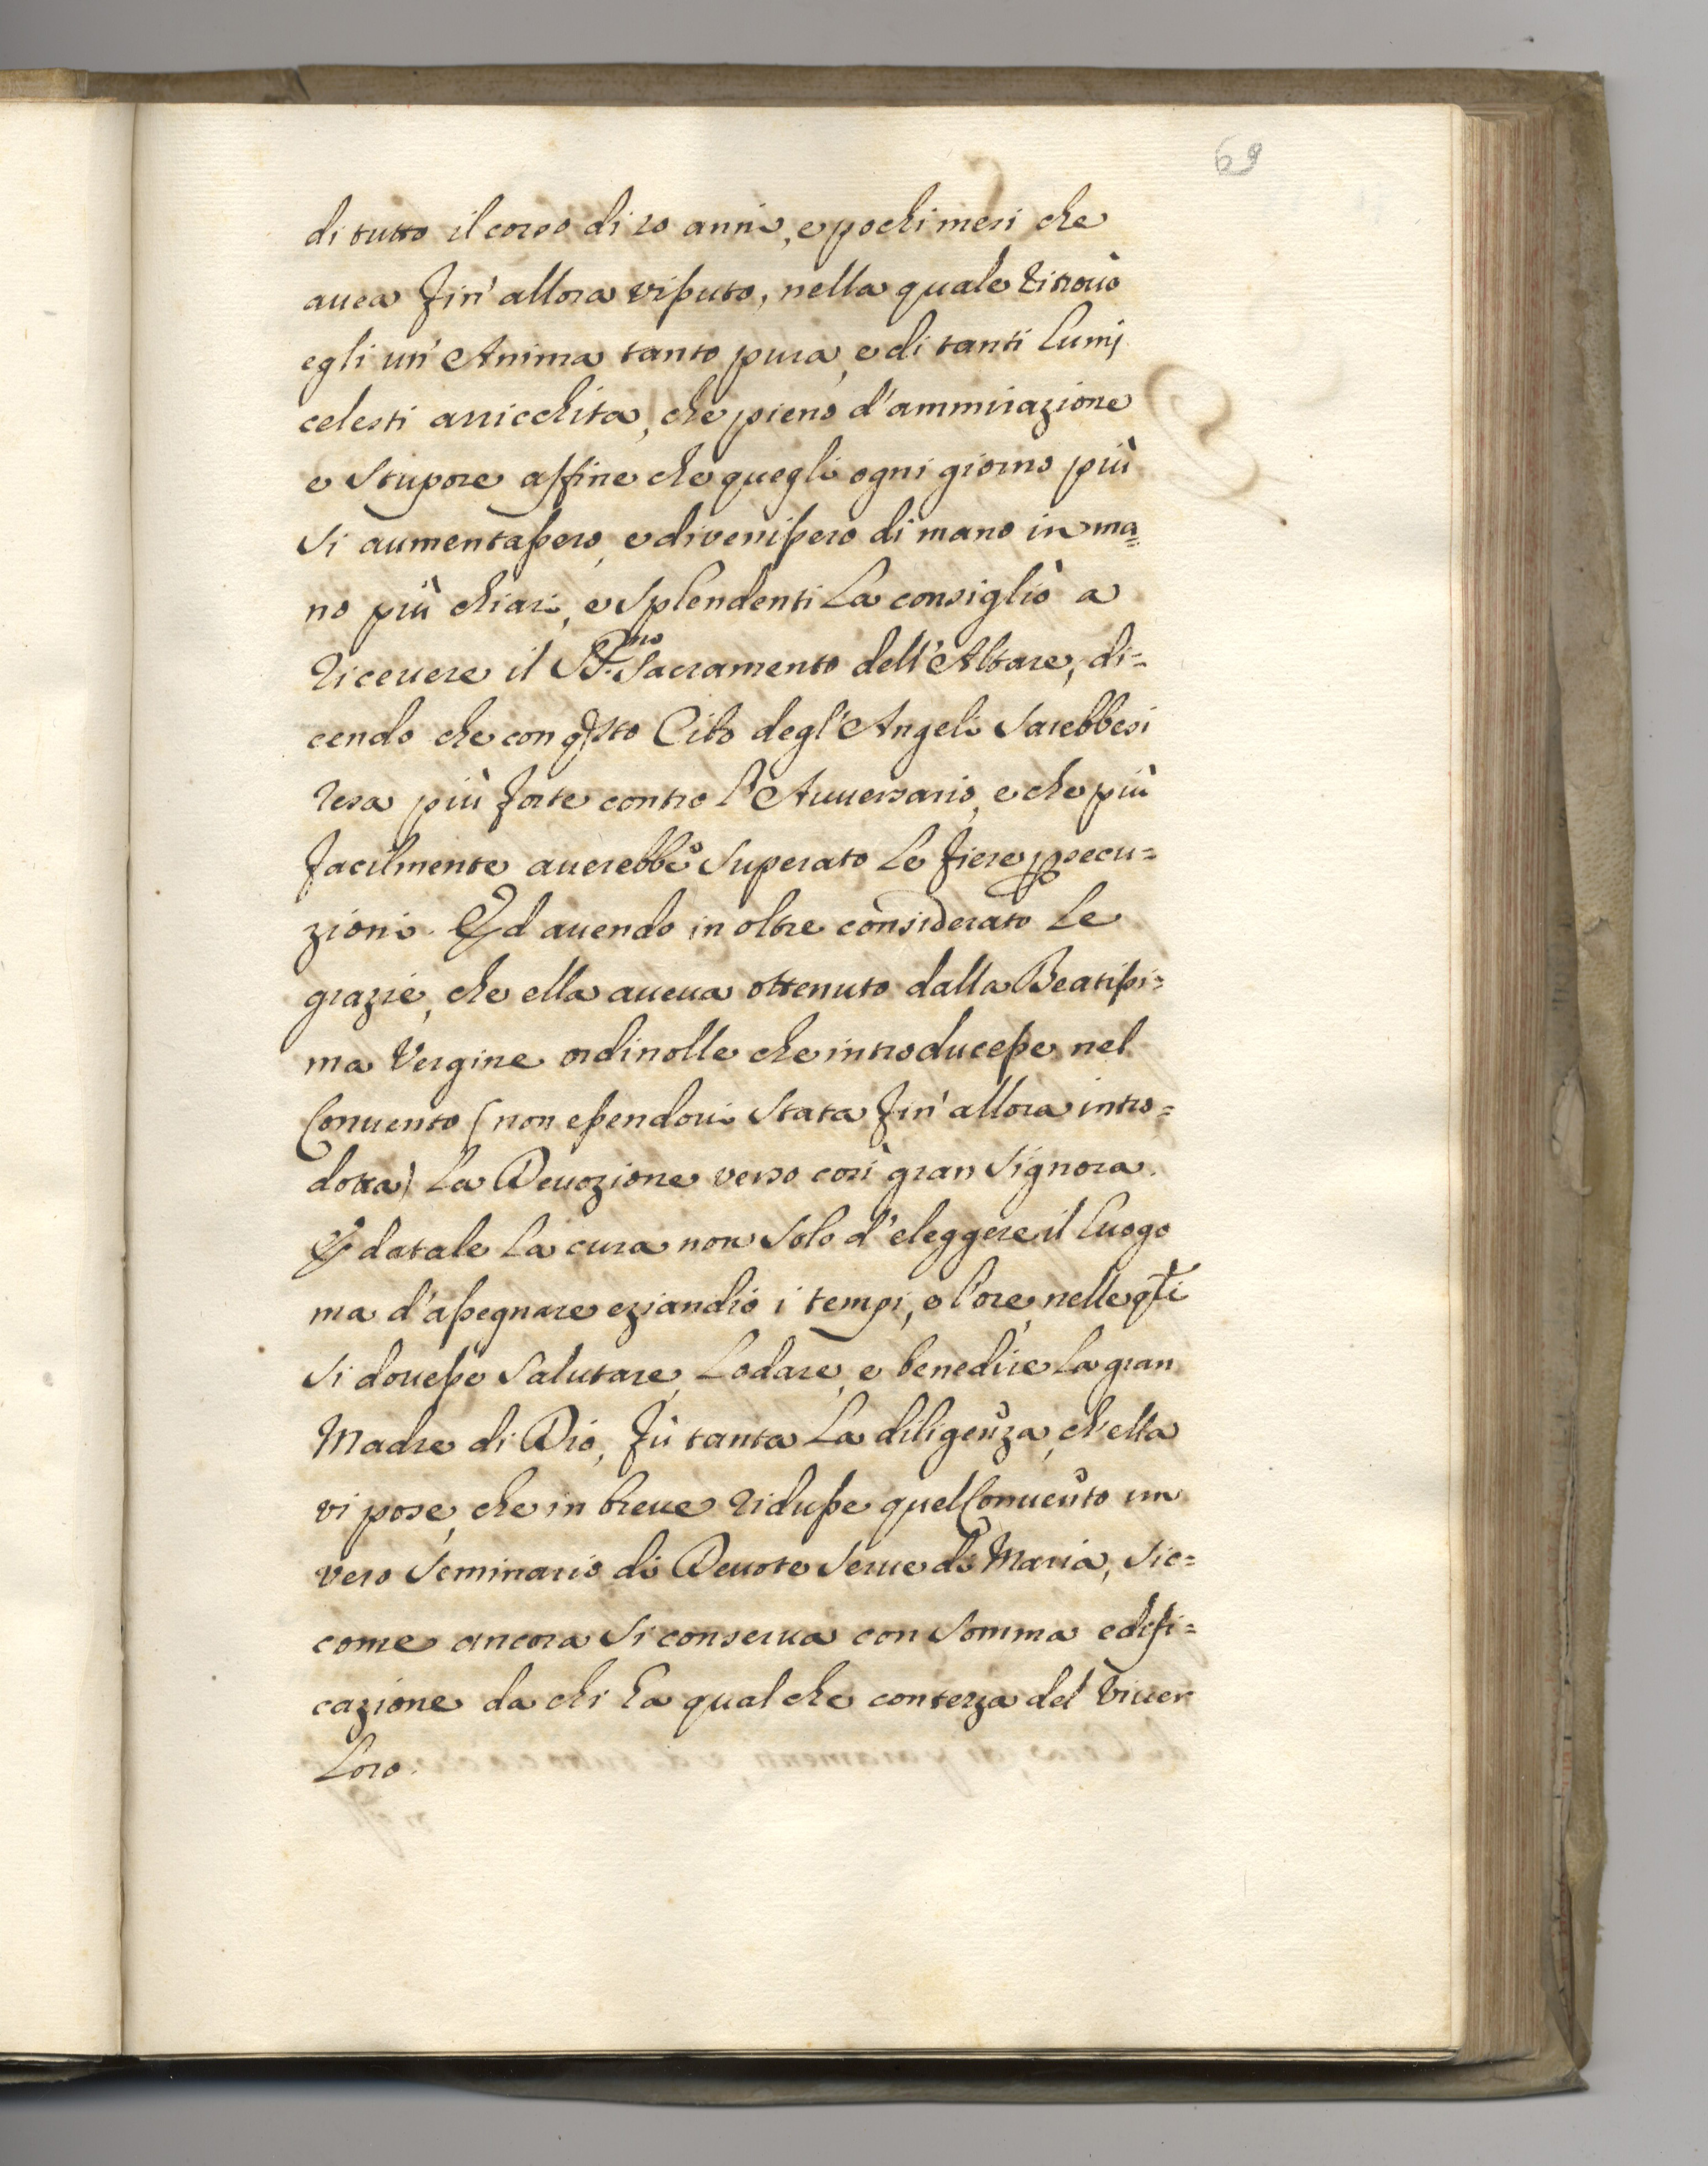 69
di tutto il corso di 20 anni, e pochi mesi che
auea fin' allora vissuto, nella quale ritrouò
egli un' Anima tanto pura, e di tanti lumj
celesti arricchita, che pieno d'ammirazione
e stupore affine che quegli ogni giorno più
si aumentassero, e divenissero di mano in ma=
no più chiari, e splendenti la consigliò a
riceuere il SS.mo Sacramento dell'Altare, di=
cendo che con qsto Cibo degl'Angeli sarebbesi
resa più forte contro l'Auuersario, e che più
facilmente auerebbe superato le fiere psecu=
zioni. Ed auendo in oltre considerato le
grazie, che ella aueua ottenuto dalla Beatissi=
ma Vergine ordinolle che introducesse nel
Conuento (non essendoui stata fin' allora intro=
dotta) la Deuozione verso così gran Signora.
E datale la cura non solo d'eleggere il luogo
ma d'assegnare eziandio i tempi, e l'ore, nelle qli
si douesse salutare, lodare, e benedire la gran
Madre di Dio, fù tanta la diligenza, ch'ella
vi pose, che in breue ridusse quel Conuento un
vero Seminario di Deuote Serue di Maria, sic=
come ancora si conserua con somma edifi=
cazione da chi ha qualche contezza del viuer
loro.